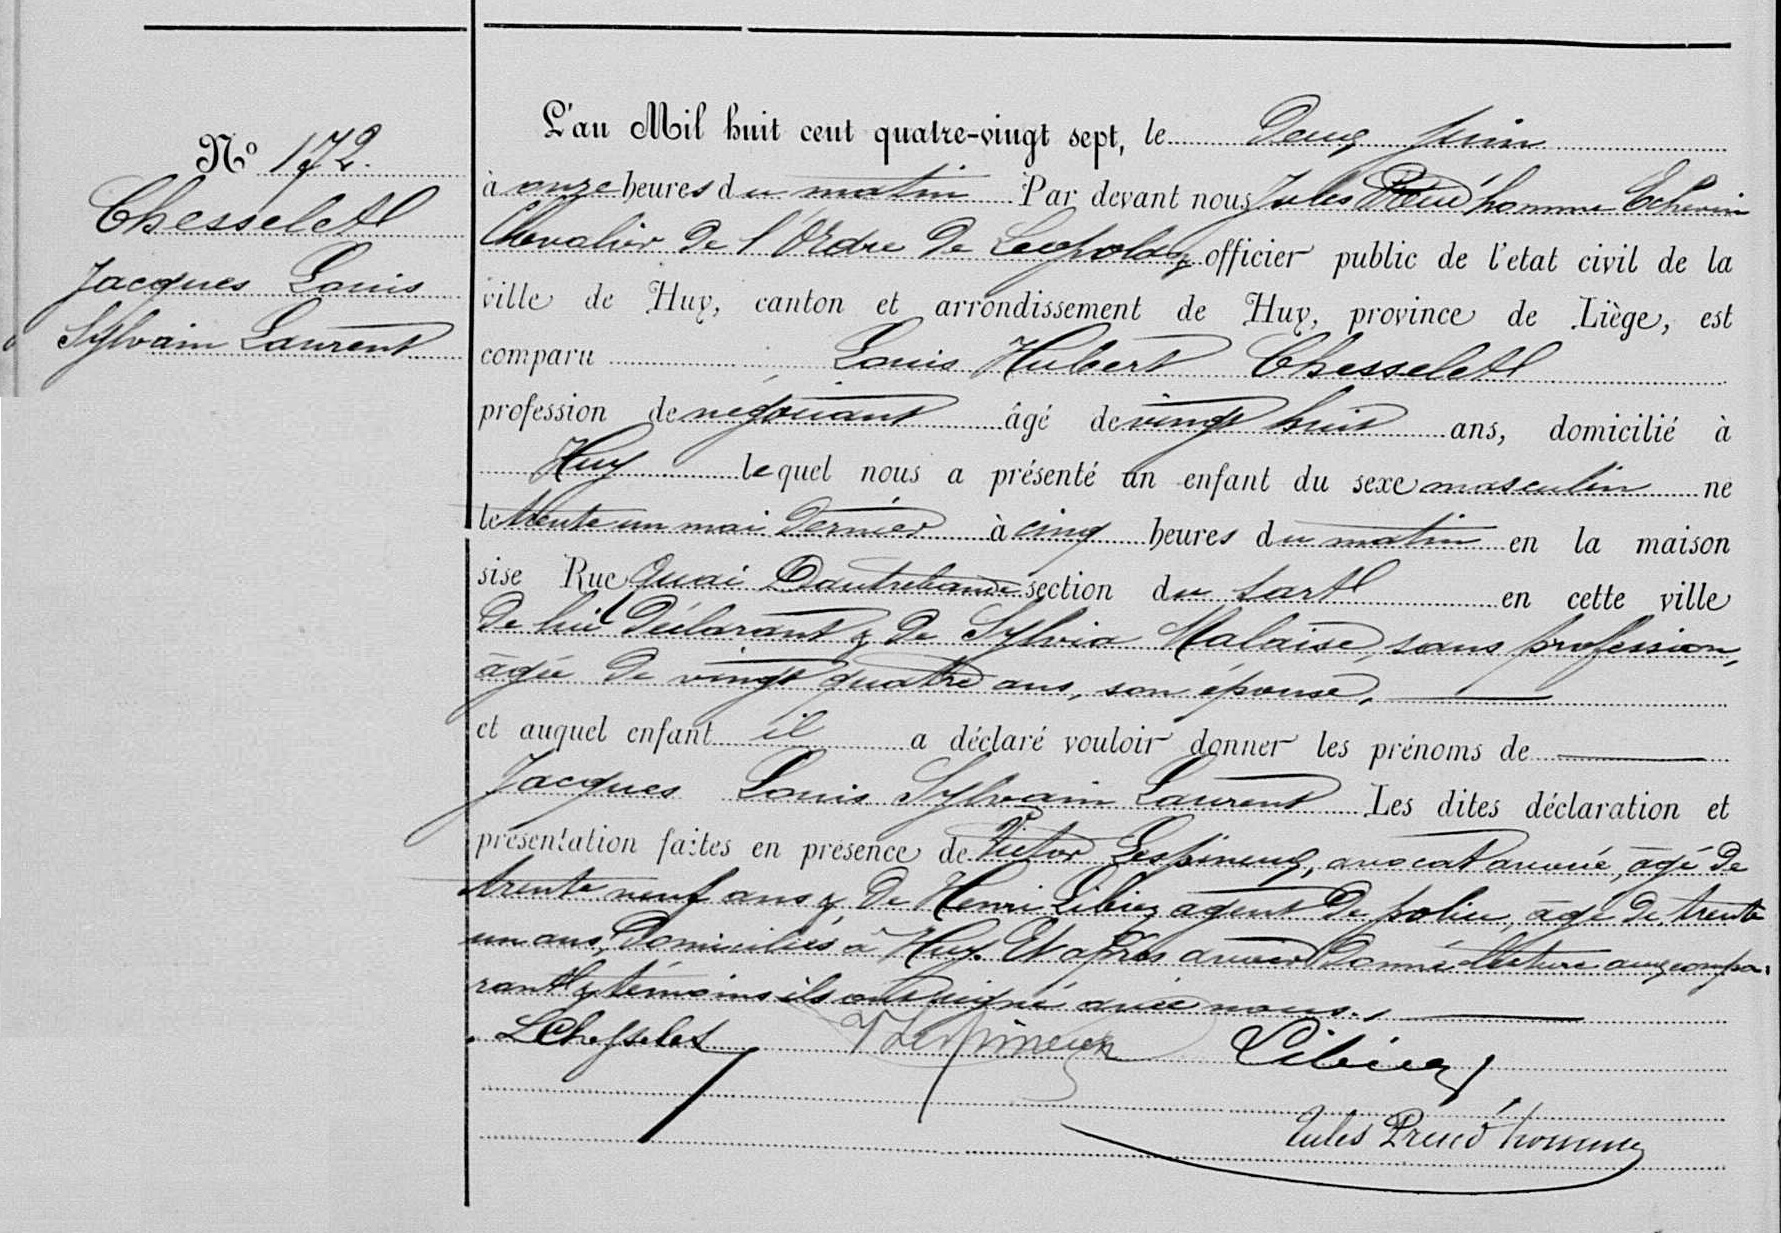 N° 172.
Chesselet
Jacques Louis
Sylvain Laurent
L'an Mil huit cent quatre-vingt sept, le deux juin
à onze heures du matin Par devant nous Jules Preud'homme Echevin
Chevalier de l'Ordre de Léopold, officier public de l'etat civil de la
ville de Huy, canton et arrondissement de Huy, province de Liège, est
comparu Louis Hubert Chesselet
profession de négociant âgé de vingt huit ans, domicilié à
Huy lequel nous a présenté un enfant du sexe masculin ne
le trente un mai dernier à cinq heures du matin en la maison
sise Rue Quai Dautrebande section du sart en cette ville
de lui déclarant & de Sylvia Malaise, sans profession,
âgée de vingt quatre ans, son épouse,
et auquel enfant il a déclaré vouloir donner les prénoms de
Jacques Louis Sylvain Laurent Les dites déclaration et
présentation faites en présence de Victor Lespineux, avocat avoué, âgé de
trente neuf ans & de Henri Libiez agent de police, âgé de trente
un ans, domiciliés à Huy. Et après avoir donné lecture aux compa-
rant & témoins ils ont signé avec nous.
L Chesselet VLespineux Libiez
Jules Preud'homme